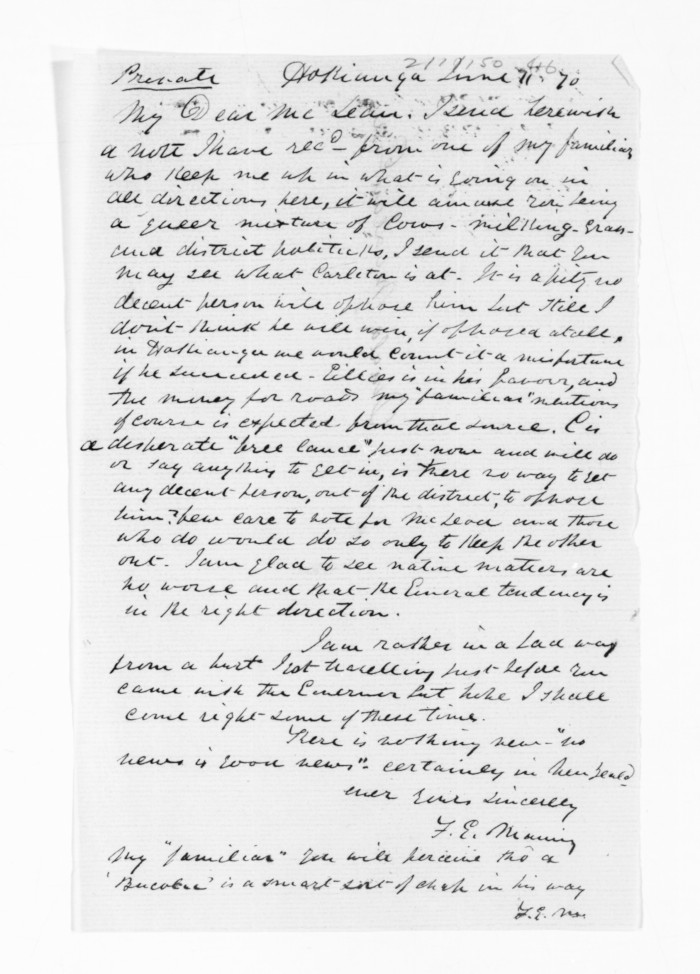 Private Hokianga June 11. 70
My Dear McLean. I send herewith
a note I have recd from one of my familiars
who keep me up in what is going on in
all directions here, it will amuse you being
a queer mixture of Cows - milking - grass -
and district politicks, I send it that you
may see what Carleton is at. It is a pity no
decent person will oppose him but still I
don't think he will win, if opposed at all,
in Hokianga we would count it a misfortune
if he succeeded - Gillies is in his favour, and
the money for roads my "familiar" mentions
of course is expected from that source. C is
a desperate "free lance" just now and will do
or say anything to get in, is there no way to get
any decent person, out of the district, to oppose
him? few care to vote for McLeod and those
who do would do so only to keep the other
out. I am glad to see native matters are
no worse and that the General tendency is
in the right direction.
I am rather in a bad way
from a hurt I got travelling just before you
came with the Governor but hope I shall
come right some of these times.
There is nothing new - "no
news is good news" - certainly in New Zeald
ever yours sincerely
F. E. Maning
My "familiar" you will perceive tho a
'Bucolic' is a smart sort of chap in his way
F. E. M